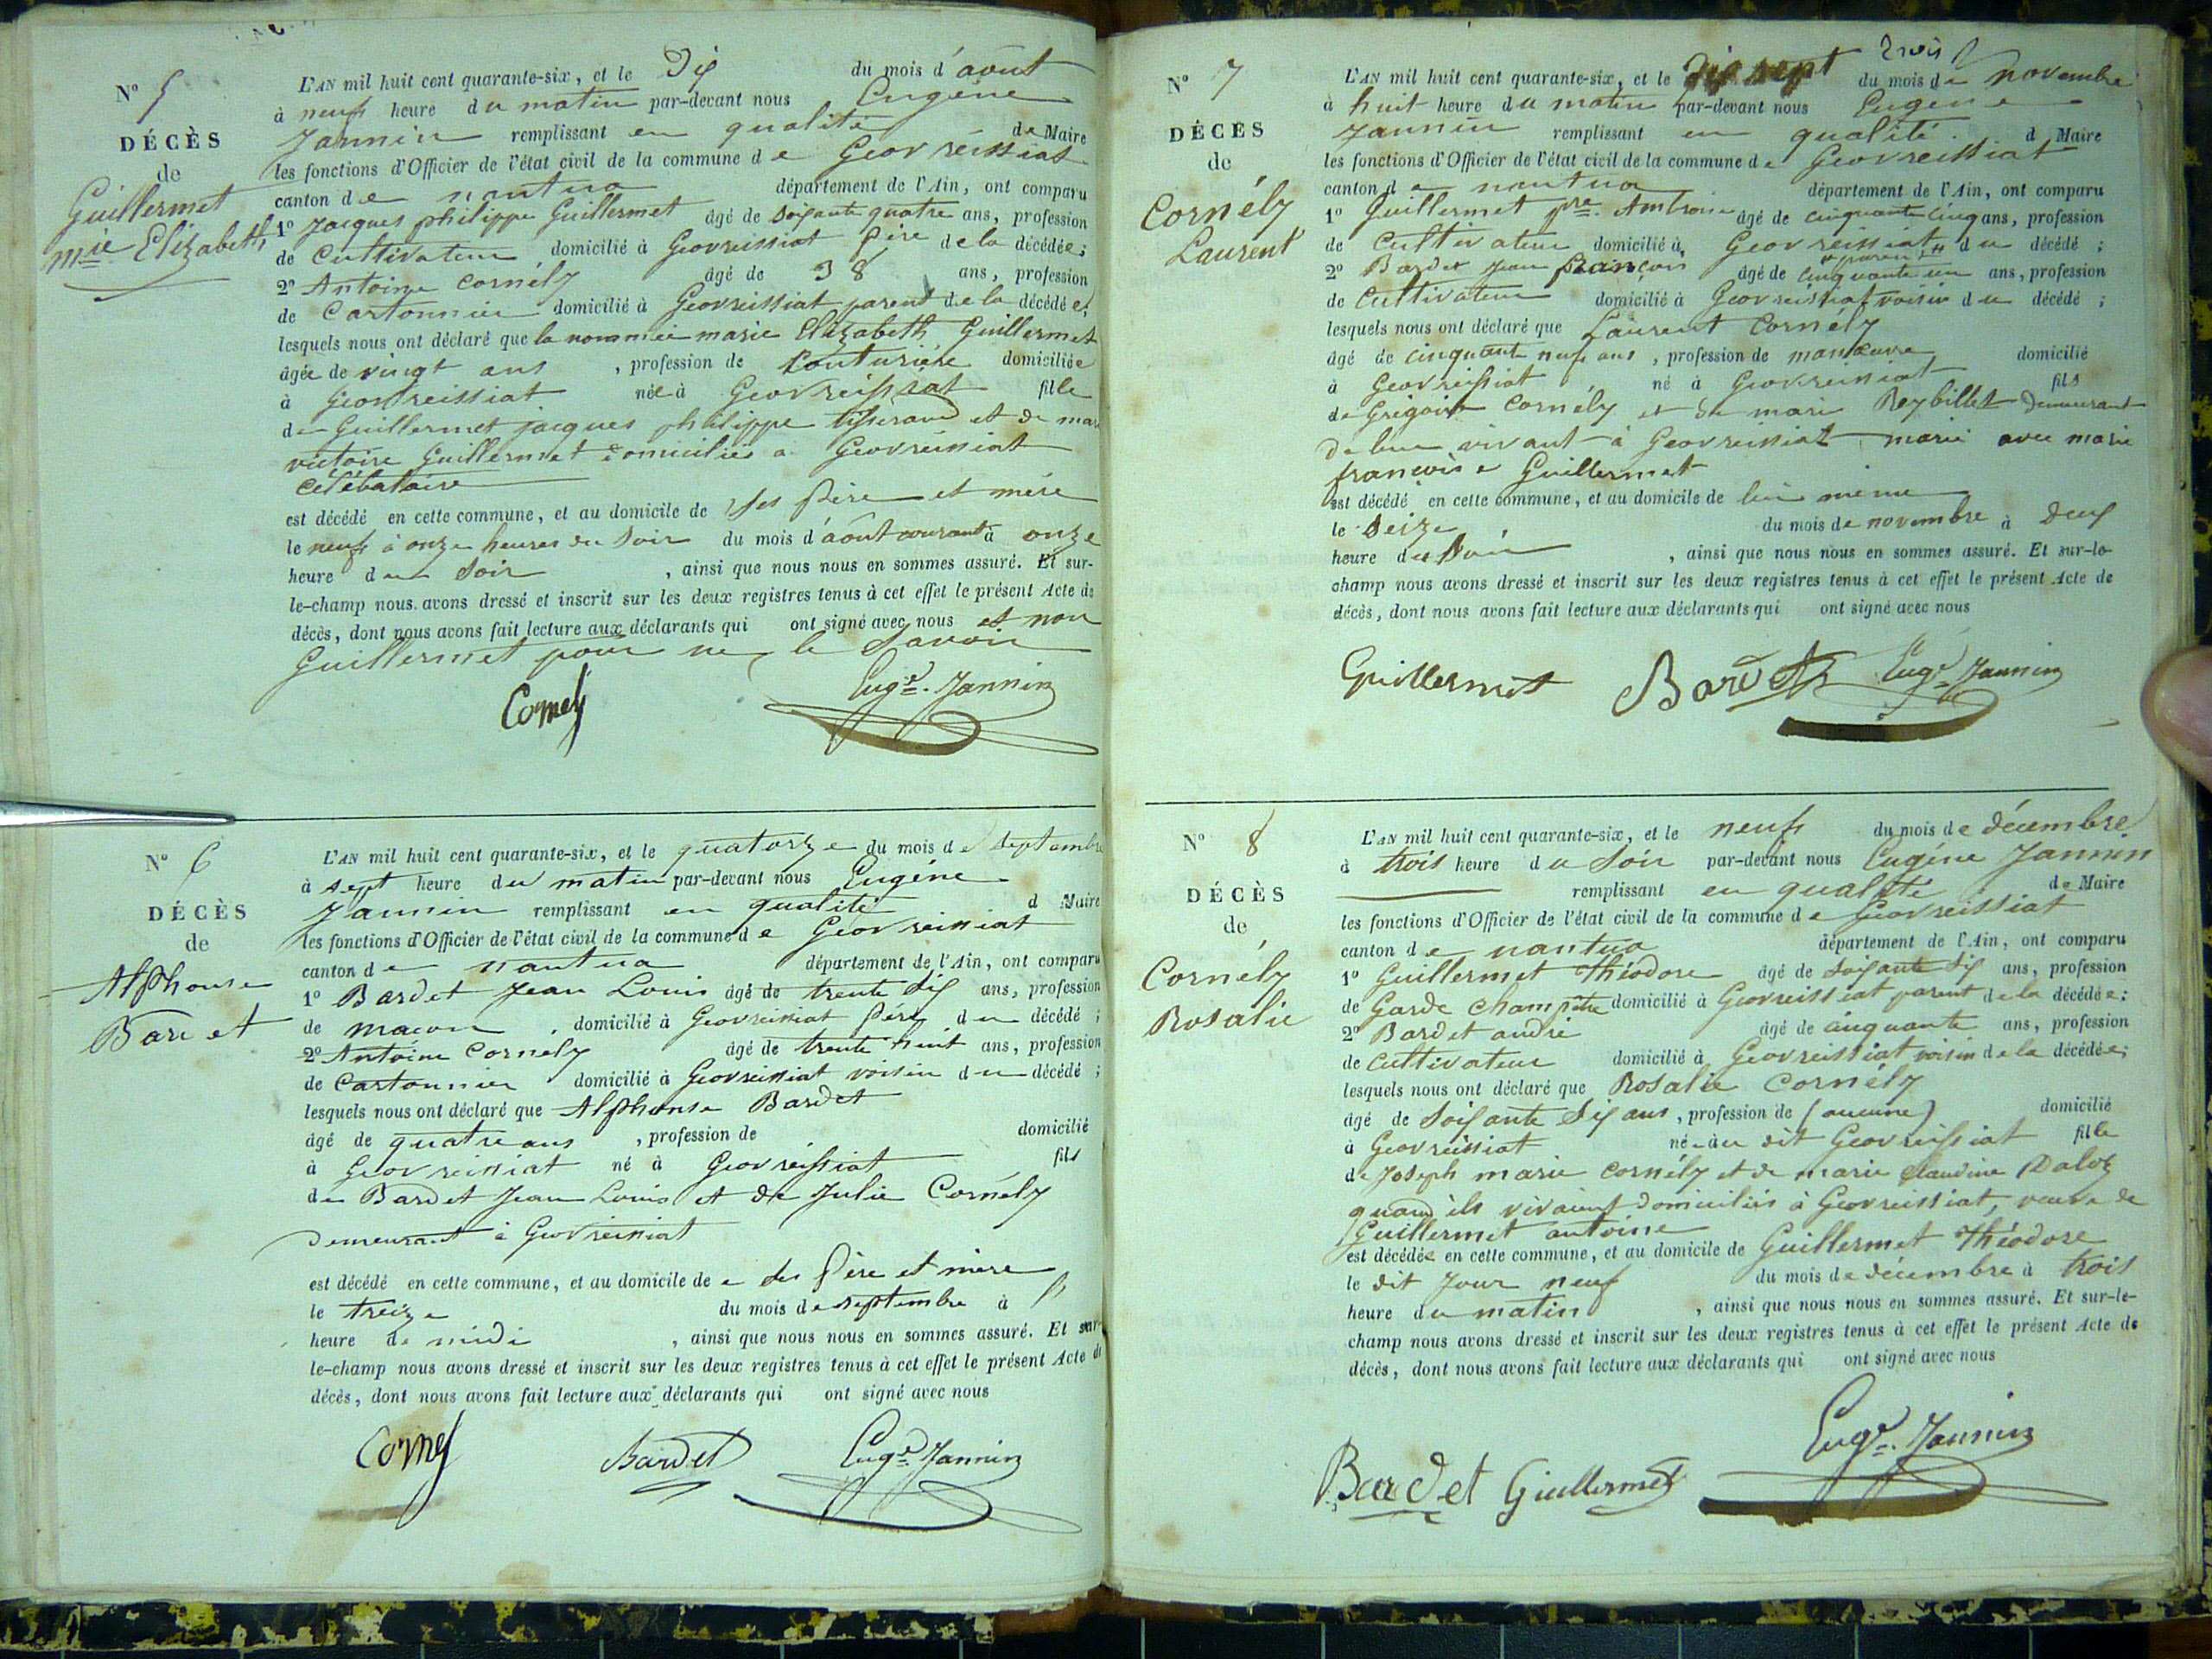 N° 5
DÉCÈS
de
Guillermet
mie Elizabeth
L'AN mil huit cent quarante-six, et le Dix du mois d'août
à neuf heure du matin par-devant nous Eugène
Jannin remplissant en qualité de Maire
les fonctions d'Officier de l'état civil de la commune de Geovreissiat
canton de nantua département de l'Ain, ont comparu
1° Jacques philippe Guillermet âgé de soixante quatre ans, profession
de Cultivateur domicilié à Geovreissiat père de la décédée;
2° Antoine Cornély âgé de 38 ans, profession
de Cartonnier domicilié à Geovreissiat parent de la décédée;
lesquels nous ont déclaré que la nommée marie Elizabeth Guillermet
âgée de vingt ans, profession de Couturière domiciliée
à Geovreissiat née à Geovreissiat fille
de Guillermet jacques philippe tisserand et de marie
victoire Guillermet domiciliés a Geovreissiat
célébataire
est décédé en cette commune, et au domicile de ses père et mère
le neuf à onze heures du soir du mois d'août courant à onze
heure du soir, ainsi que nous nous en sommes assuré. Et sur-
le-champ nous avons dressé et inscrit sur les deux registres tenus à cet effet le présent Acte de
décès, dont nous avons fait lecture aux déclarants qui ont signé avec nous et non
Guillermet pour ne le savoir
Cornely Euge. Jannin
N° 6
DÉCÈS
de
Alphonse
Bardet
L'AN mil huit cent quarante-six, et le quatorze du mois de septembre
à sept heure du matin par-devant nous Eugène
Jannin remplissant en qualité d Maire
les fonctions d'Officier de l'état civil de la commune de Geovreissiat
canton de nantua département de l'Ain, ont comparu
1° Bardet Jean Louis âgé de trente six ans, profession
de macon, domicilié à Geovreissiat père du décédé;
2° Antoine Cornely âgé de trente huit ans, profession
de Cartonnier domicilié à Geovreissiat voisin du décédé;
lesquels nous ont déclaré que Alphonse Bardet
âgé de quatre ans, profession de domicilié
à Geovreissiat né à Geovreissiat fils
de Bardet Jean Louis et de Julie Cornély
demeurant à Geovreissiat
est décédé en cette commune, et au domicile de ses père et mère
le treize du mois de septembre à
heure de midi, ainsi que nous nous en sommes assuré. Et sur-
le-champ nous avons dressé et inscrit sur les deux registres tenus à cet effet le présent Acte de
décès, dont nous avons fait lecture aux déclarants qui ont signé avec nous
Cornely Bardet Euge. Jannin
N° 7
DÉCÈS
de
Cornély
Laurent
L'AN mil huit cent quarante-six, et le Dix sept du mois de novembre
à huit heure du matin par-devant nous Eugene
Jannin remplissant en qualité d Maire
les fonctions d'Officier de l'état civil de la commune de Geovreissiat
canton de nantua département de l'Ain, ont comparu
1° Guillermet pre. Ambroise âgé de cinquante cinq ans, profession
de Cultivateur domicilié à Geovreissiat parent du décédé;
2° Bardet Jean françois âgé de cinquante un ans, profession
de Cultivateur domicilié à Geovreissiat voisin du décédé;
lesquels nous ont déclaré que Laurent Cornély
âgé de cinquante neuf ans, profession de manœuvre domicilié
à Geovreissiat né à Geovreissiat fils
de Grégoire Cornély et de marie Reybillet demeurant
de leur vivant à Geovreissiat marié avec marie
françoise Guillermet
est décédé en cette commune, et au domicile de lui même
le Seize du mois de novembre à deux
heure du soir, ainsi que nous nous en sommes assuré. Et sur-le-
champ nous avons dressé et inscrit sur les deux registres tenus à cet effet le présent Acte de
décès, dont nous avons fait lecture aux déclarants qui ont signé avec nous
Guillermet Bardet Euge. Jannin
N° 8
DÉCÈS
de
Cornély
Rosalie
L'AN mil huit cent quarante-six, et le neuf du mois de décembre
à trois heure du soir par-devant nous Eugéne Jannin
remplissant en qualité de Maire
les fonctions d'Officier de l'état civil de la commune de Geovreissiat
canton de nantua département de l'Ain, ont comparu
1° Guillermet théodore âgé de soixante six ans, profession
de Garde Champêtre domicilié à Geovreissiat parent de la décédée;
2° Bardet andré âgé de cinquante ans, profession
de Cultivateur domicilié à Geovreissiat voisin de la décédée;
lesquels nous ont déclaré que Rosalie Cornély
âgé de soixante six ans, profession de (aucune) domicilié
à Geovreissiat née au dit Geovreissiat fille
de Joseph marie Cornély et de marie Claudine Daloz
quand ils vivaient domiciliés à Geovreissiat, veuve de
Guillermet antoine
est décédée en cette commune, et au domicile de Guillermet Théodore
le dit Jour neuf du mois de décembre à trois
heure du matin, ainsi que nous nous en sommes assuré. Et sur-le-
champ nous avons dressé et inscrit sur les deux registres tenus à cet effet le présent Acte de
décès, dont nous avons fait lecture aux déclarants qui ont signé avec nous
Bardet Guillermet Euge. Jannin